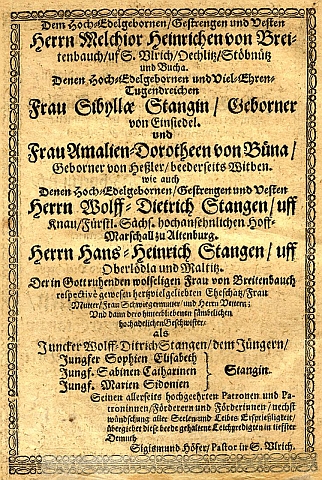 Dem Hoch-Edelgebornen/Gestrengen und Vesten
Herrn Melchior Heinrichen von Brei-
tenbauch/uf S. Ulrich/Oechlitz/Stöbnitz
und Bucha.
Denen Hoch-Edelgebornen und Viel-Ehren-
Tugendreichen
Frau Sibyllæ Stangin/ Geborner
von Einsiedel.
und
Frau Amalien-Dorotheen von Büna/
Geborner von Heßler/beederseits Witben.
wie auch
Denen Hoch-Edelgebornen/Gestrengen und Vesten
Herrn Wolff-Dietrich Stangen/ uff
Knau/Fürstl. Sächs. hochansehnlichen Hoff-
Marschall zu Altenburg.
Herrn Hans-Heinrich Stangen/ uff
Oberlödla und Maltitz.
Der in Gott ruhenden wolseligen Frau von Breitenbauch
respectivè gewesen hertzvielgeliebten Eheschatz/Frau
Mutter/Frau Schwiegermutter/und Herrn Vettern;
Und dann dero hinterbliebenen sämbtlichen
hochadelichen Geschwister.
als
Juncker Wolff-Ditrich Stangen/dem Jüngern/
Jungfer Sophien Elisabeth
Jungf. Sabinen Catharinen
Jungf. Marien Sidonien
Stangin.
Seinen allerseits hochgeehrten Patronen und Pa-
troninnen/Förderern und Förderinnen/nechst
wündschung aller Seelen und Leibes Ersprießligkeit/
übergiebet diese beede gehaltene Leichpredigten in tieffster
Demuth
Sigismund Höfer/Pastor in S. Ulrich.